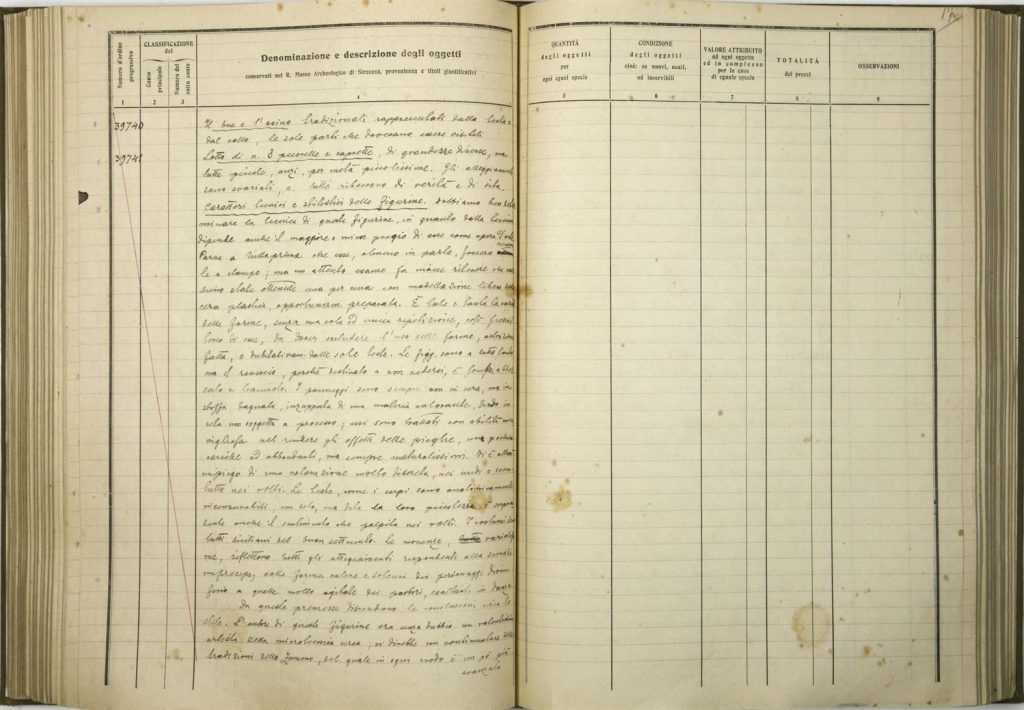 Numero d'ordine progressivo
CLASSIFICAZIONE del
Conto principale
Numero del sotto conto
Denominazione e descrizione degli oggetti
conservati nel R. Museo Archeologico di Siracusa, provenienza e titoli giustificativi
QUANTITÀ
degli oggetti
per
ogni egual specie
CONDIZIONE
degli oggetti
cioè: se nuovi, usati,
od inservibili
VALORE ATTRIBUITO
ad ogni oggetto
ed in complesso
per le cose
di eguale specie
TOTALITÀ
dei prezzi
OSSERVAZIONI
1 2 3 4 5 6 7 8 9
39740 Il bue e l'asino tradizionali rappresentati dalla testa e
dal collo, le sole parti che dovevano essere visibili
39741 Lotto di n. 8 pecorelle e caprette, di grandezze diverse, ma
tutte piccole, anzi, per metà piccolissime. Gli atteggiamenti
sono svariati, e tutti riboccano di verità e di vita.
Caratteri tecnici e stilistici delle figurine. Dobbiamo ben
minare la tecnica di queste figurine, in quanto dalla tecnica
dipende anche il maggiore o minor pregio di esse come opera d'arte
Parve a tutta prima che esse, almeno in parte, fossero
te a stampo; ma un attento esame fa invece ritenere che
sieno state ottenute una per una con modellazione libera
cera plastica, opportunam. preparata. È tale e tanta la varietà
delle forme, senza una sola ed unica ripetizione,
di esse, da dover escludere l'uso delle forme,
fatta, e dubitativam. dalle sole teste. Le figg. sono a tutto tondo
ma il rovescio, perchè destinato a non vedersi, è
I panneggi sono sempre non in cera, ma in
stoffa bagnata, inzuppata di una materia colorante,
soggetta a processo; essi sono trattati con abilità
vigliosa nel rendere gli effetti delle pieghe,
cariche ed abbondanti, ma sempre naturalissimi. Si è
impiego di una colorazione molto discreta, nei nudi e
tutto nei volti. Le teste, come i corpi sono anatomicamente
non solo, ma data la loro piccolezza, è
dente anche il sentimento che palpita nei volti. I costumi
tutti siciliani del buon settecento. Le movenze, variatis
me, riflettono tutti gli atteggiamenti rispondenti alla scena
dalle forme calme e solenni dei personaggi
fino a quelle molto agitate dei pastori, esultanti in danza
Da queste premesse discendono le conclusioni, circa lo
stile. L'autore di queste figurine era senza dubbio un valentissimo
artista della microtecnica cerea; si direbbe un continuatore delle
tradizioni dello Zummo, del quale in ogni modo è un pò più
avanzato